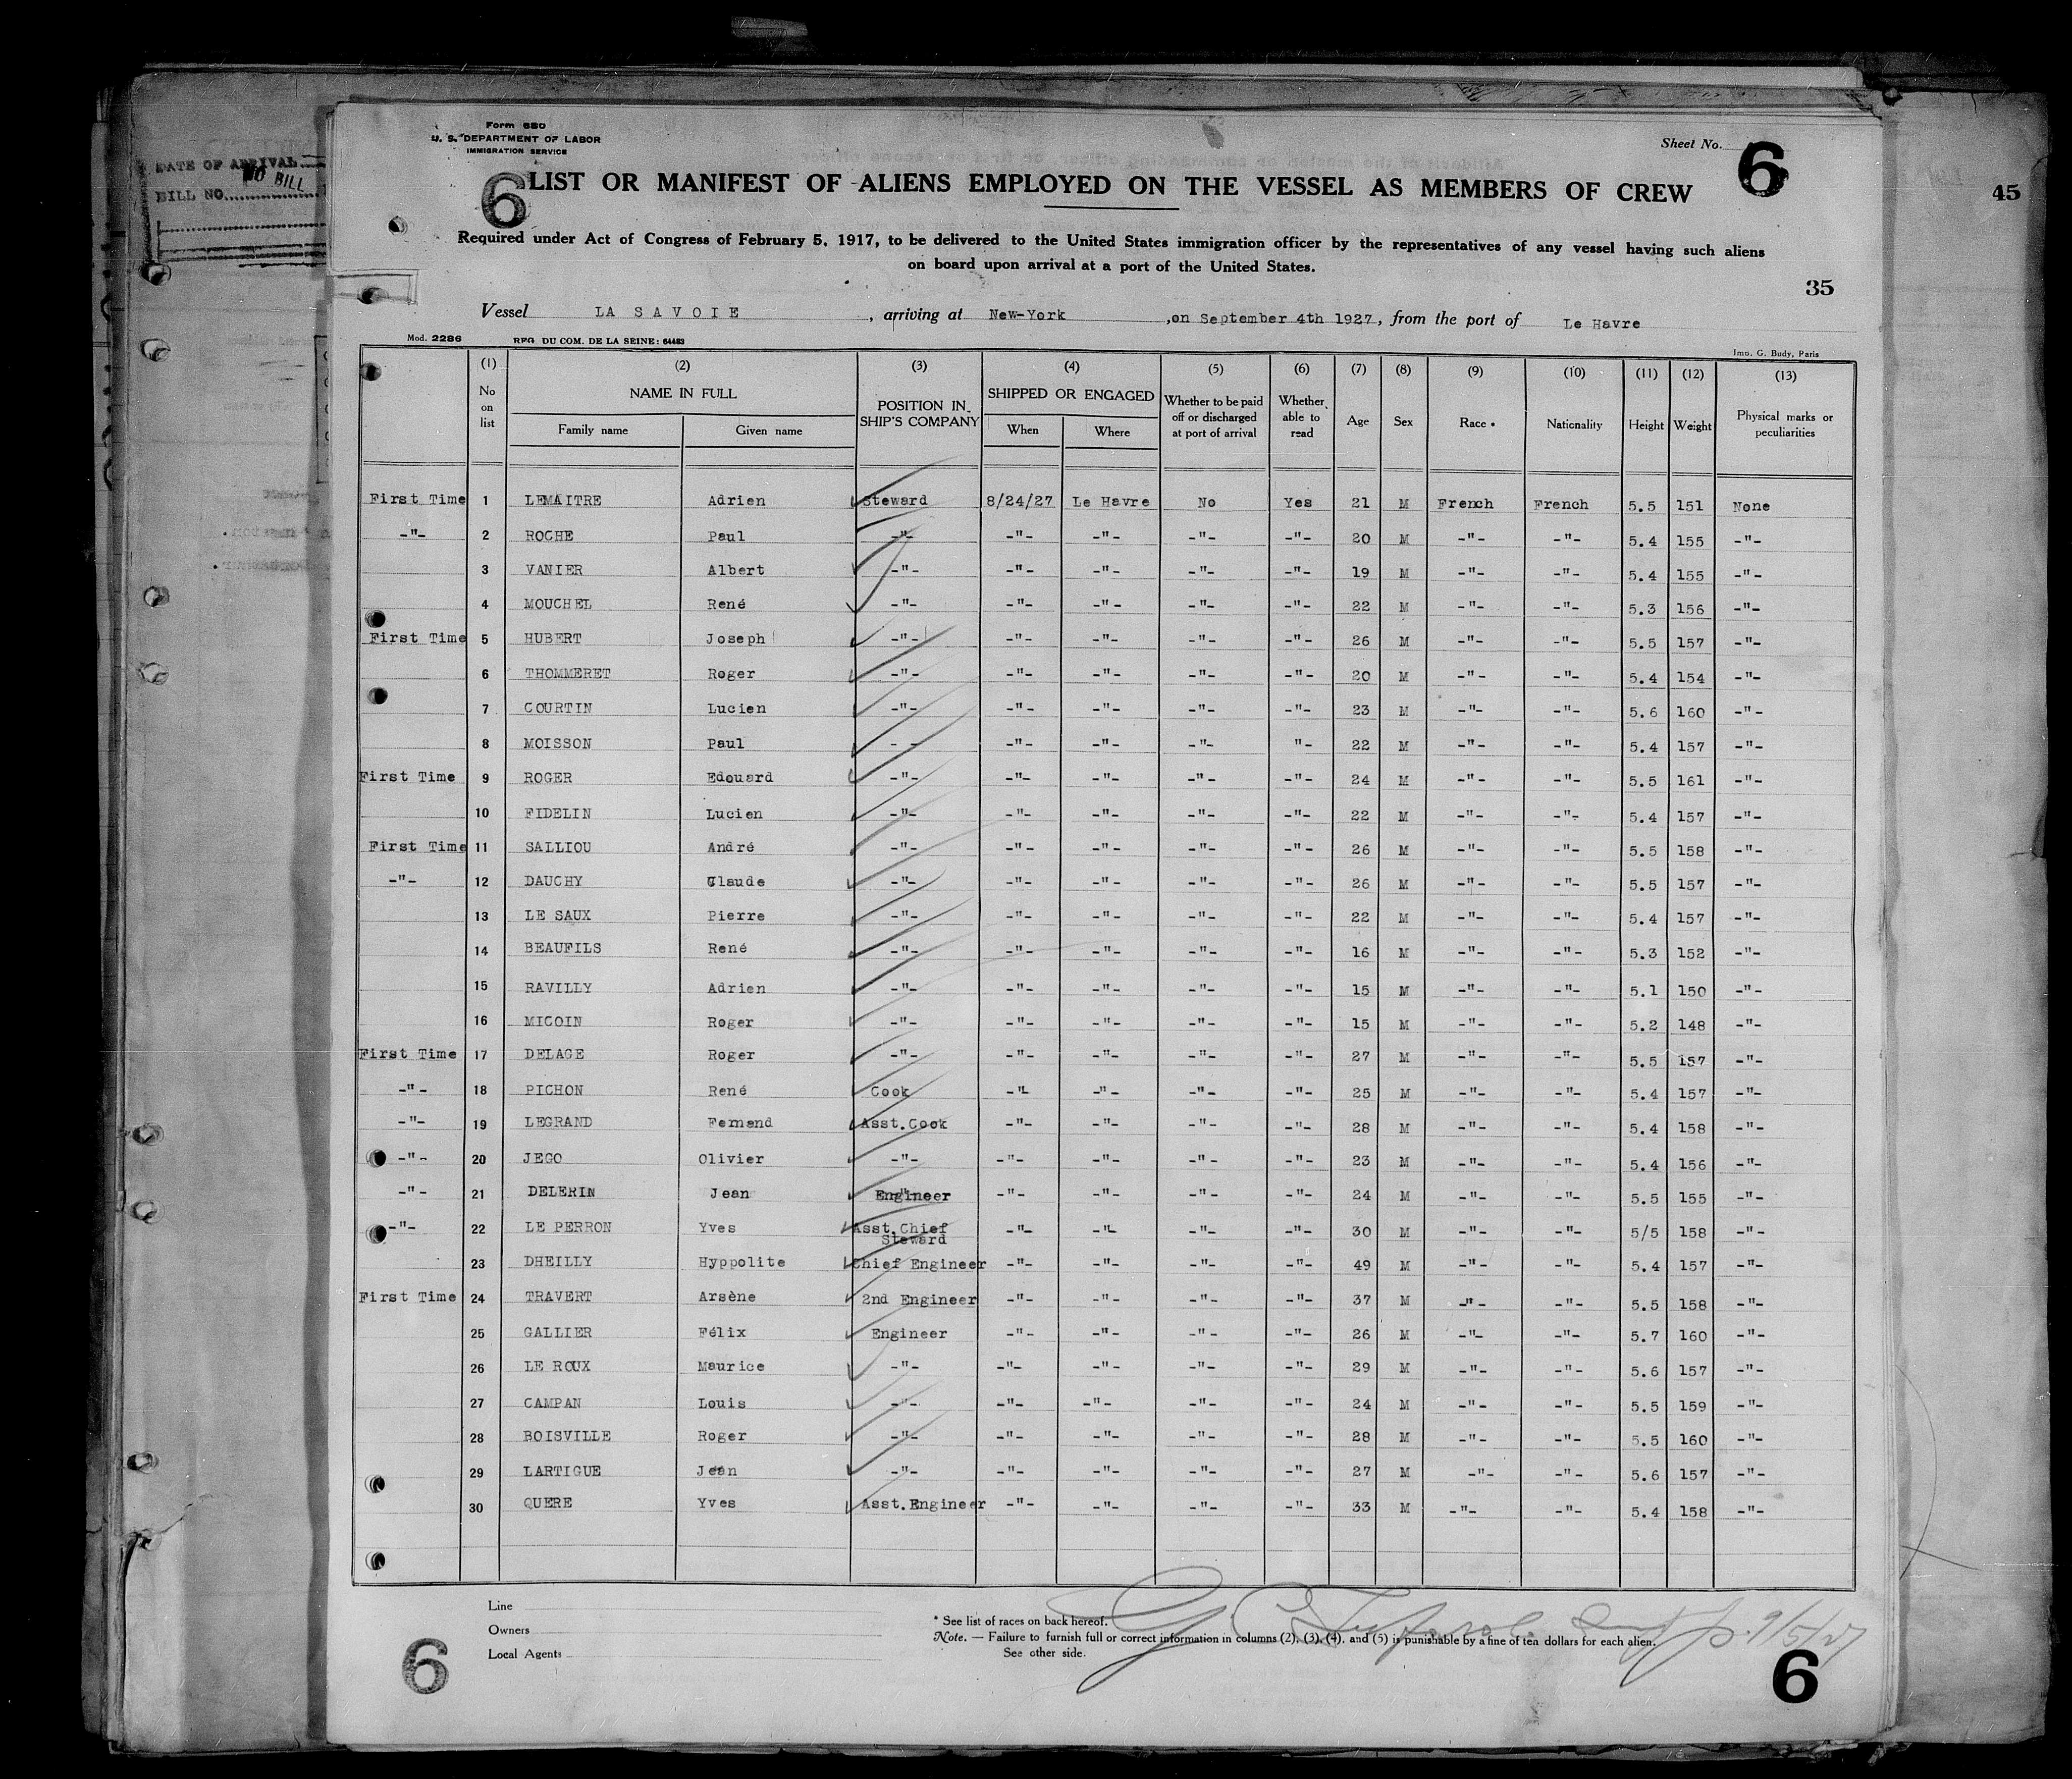 DATE OF ARRIVAL
NO BILL
BILL NO.
Form 680
U. S. DEPARTMENT OF LABOR
IMMIGRATION SERVICE
Sheet No. 6
6
LIST OR MANIFEST OF ALIENS EMPLOYED ON THE VESSEL AS MEMBERS OF CREW
45
Required under Act of Congress of February 5, 1917, to be delivered to the United States immigration officer by the representatives of any vessel having such aliens
on board upon arrival at a port of the United States.
35
Vessel LA SAVOIE, arriving at New-York, on September 4th 1927, from the port of Le Havre
Mod. 2286 REG. DU COM. DE LA SEINE: 64483 Imp. G. Budy, Paris
(1) (2) (3) (4) (5) (6) (7) (8) (9) (10) (11) (12) (13)
No on list NAME IN FULL Family name Given name POSITION IN SHIP'S COMPANY SHIPPED OR ENGAGED When Where Whether to be paid off or discharged at port of arrival Whether able to read Age Sex Race * Nationality Height Weight Physical marks or peculiarities
First Time 1 LEMAITRE Adrien Steward 8/24/27 Le Havre No Yes 21 M French French 5.5 151 None
-"- 2 ROCHE Paul -"- -"- -"- -"- -"- 20 M -"- -"- 5.4 155 -"-
3 VANIER Albert -"- -"- -"- -"- -"- 19 M -"- -"- 5.4 155 -"-
4 MOUCHEL René -"- -"- -"- -"- -"- 22 M -"- -"- 5.3 156 -"-
First Time 5 HUBERT Joseph -"- -"- -"- -"- -"- 26 M -"- -"- 5.5 157 -"-
6 THOMMERET Roger -"- -"- -"- -"- -"- 20 M -"- -"- 5.4 154 -"-
7 COURTIN Lucien -"- -"- -"- -"- -"- 23 M -"- -"- 5.6 160 -"-
8 MOISSON Paul - - -"- -"- -"- "- 22 M -"- -"- 5.4 157 -"-
First Time 9 ROGER Edouard -"- -"- -"- -"- -"- 24 M -"- -"- 5.5 161 -"-
10 FIDELIN Lucien -"- -"- -"- -"- -"- 22 M -"- -"- 5.4 157 -"-
First Time 11 SALLIOU André -"- -"- -"- -"- -"- 26 M -"- -"- 5.5 158 -"-
-"- 12 DAUCHY Claude -"- -"- -"- -"- -"- 26 M -"- -"- 5.5 157 -"-
13 LE SAUX Pierre -"- -"- -"- -"- -"- 22 M -"- -"- 5.4 157 -"-
14 BEAUFILS René -"- -"- -"- -"- -"- 16 M -"- -"- 5.3 152 -"-
15 RAVILLY Adrien -"- -"- -"- -"- -"- 15 M -"- -"- 5.1 150 -"-
16 MICOIN Roger -"- -"- -"- -"- -"- 15 M -"- -"- 5.2 148 -"-
First Time 17 DELAGE Roger -"- -"- -"- -"- -"- 27 M -"- -"- 5.5 157 -"-
-"- 18 PICHON René Cook -"- -"- -"- -"- 25 M -"- -"- 5.4 157 -"-
-"- 19 LEGRAND Fernand Asst.Cook -"- -"- -"- -"- 28 M -"- -"- 5.4 158 -"-
-"- 20 JEGO Olivier -"- -"- -"- -"- -"- 23 M -"- -"- 5.4 156 -"-
-"- 21 DELERIN Jean Engineer -"- -"- -"- -"- 24 M -"- -"- 5.5 155 -"-
-"- 22 LE PERRON Yves Asst.Chief Steward -"- -"- -"- -"- 30 M -"- -"- 5/5 158 -"-
23 DHEILLY Hyppolite Chief Engineer -"- -"- -"- -"- 49 M -"- -"- 5.4 157 -"-
First Time 24 TRAVERT Arsène 2nd Engineer -"- -"- -"- -"- 37 M -"- -"- 5.5 158 -"-
25 GALLIER Félix Engineer -"- -"- -"- -"- 26 M -"- -"- 5.7 160 -"-
26 LE ROUX Maurice -"- -"- -"- -"- -"- 29 M -"- -"- 5.6 157 -"-
27 CAMPAN Louis -"- -"- -"- -"- -"- 24 M -"- -"- 5.5 159 -"-
28 BOISVILLE Roger -"- -"- -"- -"- -"- 28 M -"- -"- 5.5 160 -"-
29 LARTIGUE Jean -"- -"- -"- -"- -"- 27 M -"- -"- 5.6 157 -"-
30 QUERE Yves Asst.Engineer -"- -"- -"- -"- 33 M -"- -"- 5.4 158 -"-
Line
Owners
Local Agents
* See list of races on back hereof.
Note. — Failure to furnish full or correct information in columns (2), (3), (4), and (5) is punishable by a fine of ten dollars for each alien.
See other side.
9/5/27
6
6